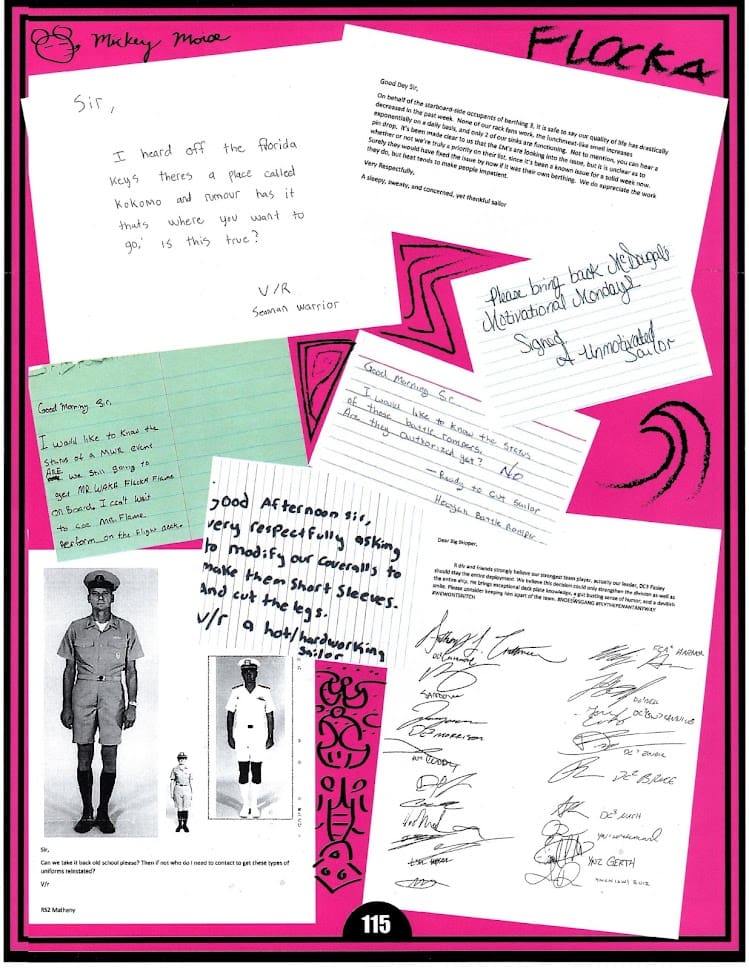 Mickey Moice
FLOCKA
Sir,
I heard off the florida
Keys theres a place called
Kokomo and rumour has it
thats where you want to
go, is this true?
V/R
Seaman Warrior
Good Day Sir,
On behalf of the starboard-side occupants of berthing 3, it is safe to say our quality of life has drastically
decreased in the past week. None of our rack fans work, the lunchmeat-like smell increases
exponentially on a daily basis, and only 2 of our sinks are functioning. Not to mention, you can hear a
pin drop. It's been made clear to us that the EM's are looking into the issue, but it is unclear as to
whether or not we're truly a priority on their list, since it's been a known issue for a solid week now.
Surely they would have fixed the issue by now if it was their own berthing. We do appreciate the work
they do, but heat tends to make people impatient.
Very Respectfully,
A sleepy, sweaty, and concerned, yet thankful sailor
Please bring back McDougal's
Motivational Mondays!
Signed
A Unmotivated
Sailor
Good Morning Sir,
I would like to know the
Status of a MWR event
ARE we still going to
get MR. WAKA Flocka Flame
on Board. I can't wait
to see MR. Flame
perform on the flight deck.
Good Morning Sir
I would like to know the status
of those battle rompers.
Are they authorized yet? No
- Ready to cut Sailor
Good Afternoon Sir,
very respectfully asking
to modify our coveralls to
make them short sleeves.
And cut the legs.
V/r a hot/hardworking
Sailor
Dear Big Skipper,
R div and friends strongly believe our strongest team player, actually our leader, DC3 Pasley
should stay the entire deployment. We believe this decision could only strengthen the division as well as
the entire ship. He brings exceptional deck plate knowledge, a gut busting sense of humor, and a devilish
smile. Please consider keeping him apart of the team. #NOEWSGANG #FLYTHEPENANTANYWAY
#WEWONTSNITCH
SANDOVAL
DC3 MORRISON
DC2 BRUCE
YN2 GERTH
Sir,
Can we take it back old school please? Then if not who do I need to contact to get these types of
uniforms reinstated?
V/r
RS2 Matheny
115